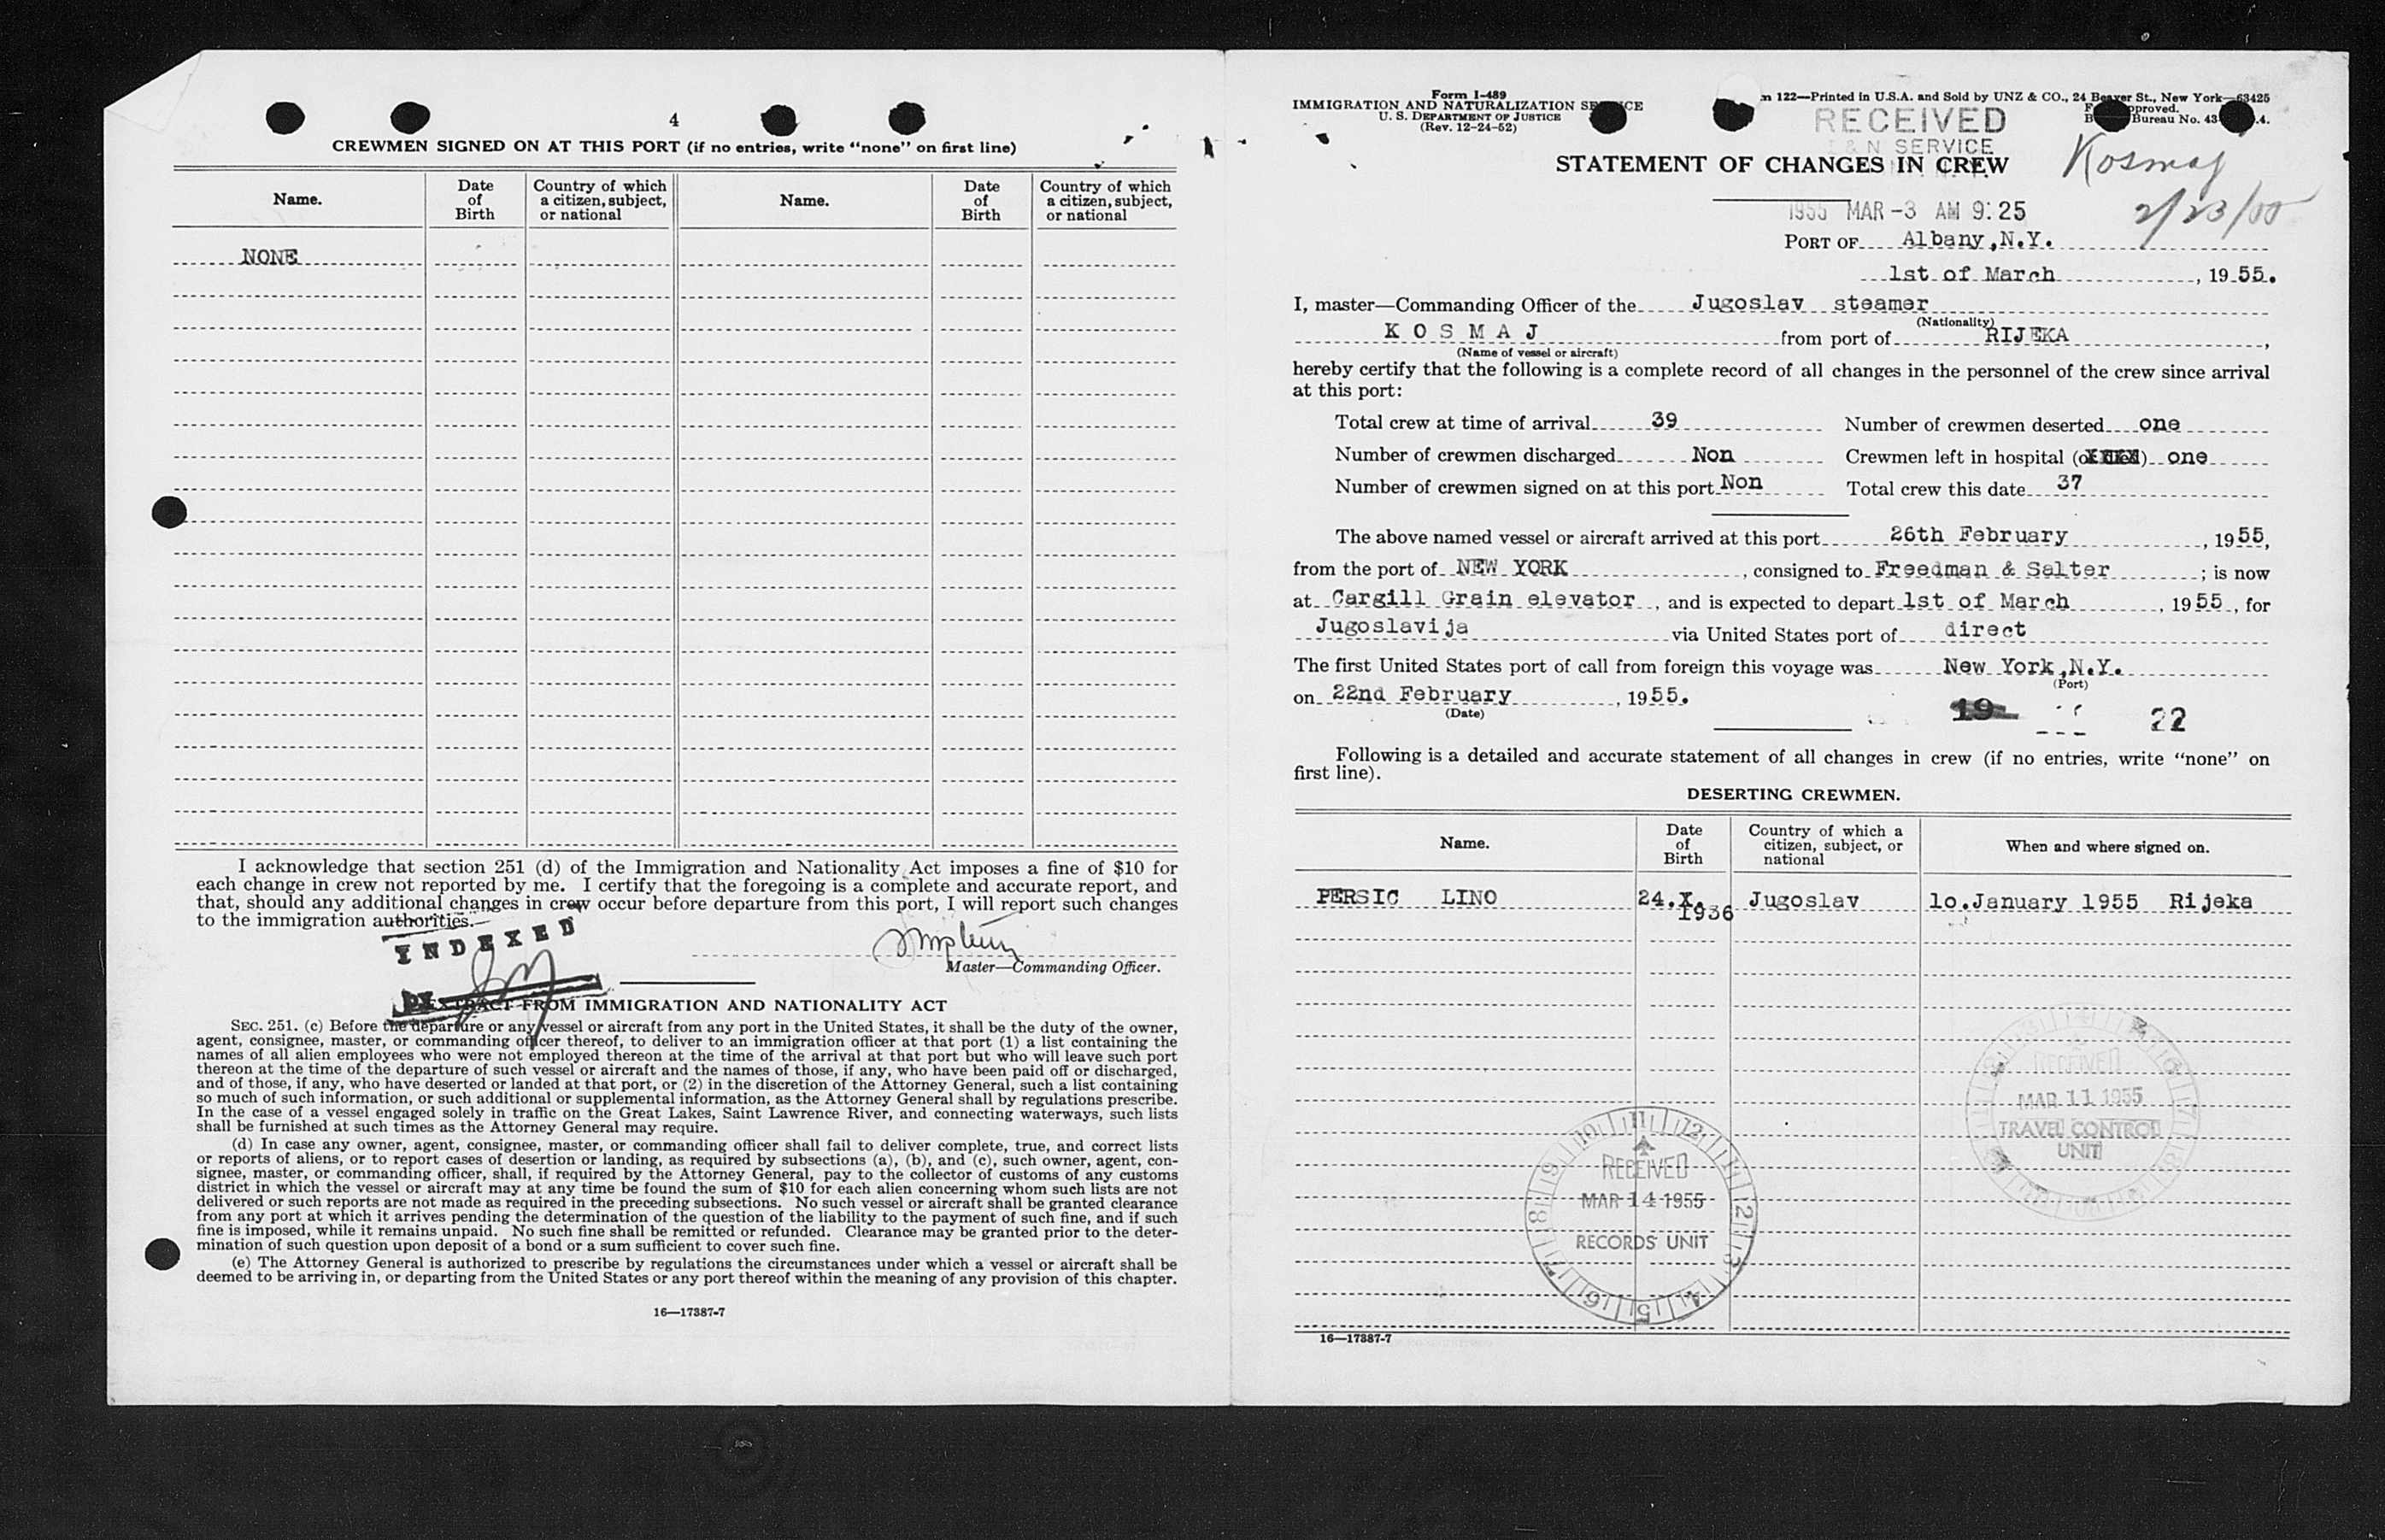 4
CREWMEN SIGNED ON AT THIS PORT (if no entries, write “none” on first line)
Name. Date of Birth Country of which a citizen, subject, or national Name. Date of Birth Country of which a citizen, subject, or national
NONE
I acknowledge that section 251 (d) of the Immigration and Nationality Act imposes a fine of $10 for
each change in crew not reported by me. I certify that the foregoing is a complete and accurate report, and
that, should any additional changes in crew occur before departure from this port, I will report such changes
to the immigration authorities.
INDEXED
Master—Commanding Officer.
EXTRACT FROM IMMIGRATION AND NATIONALITY ACT
SEC. 251. (c) Before the departure or any vessel or aircraft from any port in the United States, it shall be the duty of the owner,
agent, consignee, master, or commanding officer thereof, to deliver to an immigration officer at that port (1) a list containing the
names of all alien employees who were not employed thereon at the time of the arrival at that port but who will leave such port
thereon at the time of the departure of such vessel or aircraft and the names of those, if any, who have been paid off or discharged,
and of those, if any, who have deserted or landed at that port, or (2) in the discretion of the Attorney General, such a list containing
so much of such information, or such additional or supplemental information, as the Attorney General shall by regulations prescribe.
In the case of a vessel engaged solely in traffic on the Great Lakes, Saint Lawrence River, and connecting waterways, such lists
shall be furnished at such times as the Attorney General may require.
(d) In case any owner, agent, consignee, master, or commanding officer shall fail to deliver complete, true, and correct lists
or reports of aliens, or to report cases of desertion or landing, as required by subsections (a), (b), and (c), such owner, agent, con-
signee, master, or commanding officer, shall, if required by the Attorney General, pay to the collector of customs of any customs
district in which the vessel or aircraft may at any time be found the sum of $10 for each alien concerning whom such lists are not
delivered or such reports are not made as required in the preceding subsections. No such vessel or aircraft shall be granted clearance
from any port at which it arrives pending the determination of the question of the liability to the payment of such fine, and if such
fine is imposed, while it remains unpaid. No such fine shall be remitted or refunded. Clearance may be granted prior to the deter-
mination of such question upon deposit of a bond or a sum sufficient to cover such fine.
(e) The Attorney General is authorized to prescribe by regulations the circumstances under which a vessel or aircraft shall be
deemed to be arriving in, or departing from the United States or any port thereof within the meaning of any provision of this chapter.
16—17387-7
Form I-489
IMMIGRATION AND NATURALIZATION SERVICE
U. S. DEPARTMENT OF JUSTICE
(Rev. 12-24-52)
122—Printed in U.S.A. and Sold by UNZ & CO., 24 Beaver St., New York—63425
Bureau No. 43
RECEIVED
I & N SERVICE
STATEMENT OF CHANGES IN CREW
Kosmaj
1955 MAR -3 AM 9:25
PORT OF Albany,N.Y.
1st of March, 1955.
I, master—Commanding Officer of the Jugoslav steamer
(Nationality)
K O S M A J from port of RIJEKA,
(Name of vessel or aircraft)
hereby certify that the following is a complete record of all changes in the personnel of the crew since arrival
at this port:
Total crew at time of arrival 39 Number of crewmen deserted one
Number of crewmen discharged Non Crewmen left in hospital (or died) one
Number of crewmen signed on at this port Non Total crew this date 37
The above named vessel or aircraft arrived at this port 26th February, 1955,
from the port of NEW YORK, consigned to Freedman & Salter; is now
at Cargill Grain elevator, and is expected to depart 1st of March, 1955, for
Jugoslavija via United States port of direct
The first United States port of call from foreign this voyage was New York,N.Y.
(Port)
on 22nd February, 1955.
(Date)
19 22
Following is a detailed and accurate statement of all changes in crew (if no entries, write “none” on
first line).
DESERTING CREWMEN.
Name. Date of Birth Country of which a citizen, subject, or national When and where signed on.
PERSIC LINO 24.X. 1936 Jugoslav 1o.January 1955 Rijeka
RECEIVED
MAR 11 1955
TRAVEL CONTROL
UNIT
RECEIVED
MAR 14 1955
RECORDS UNIT
16—17387-7